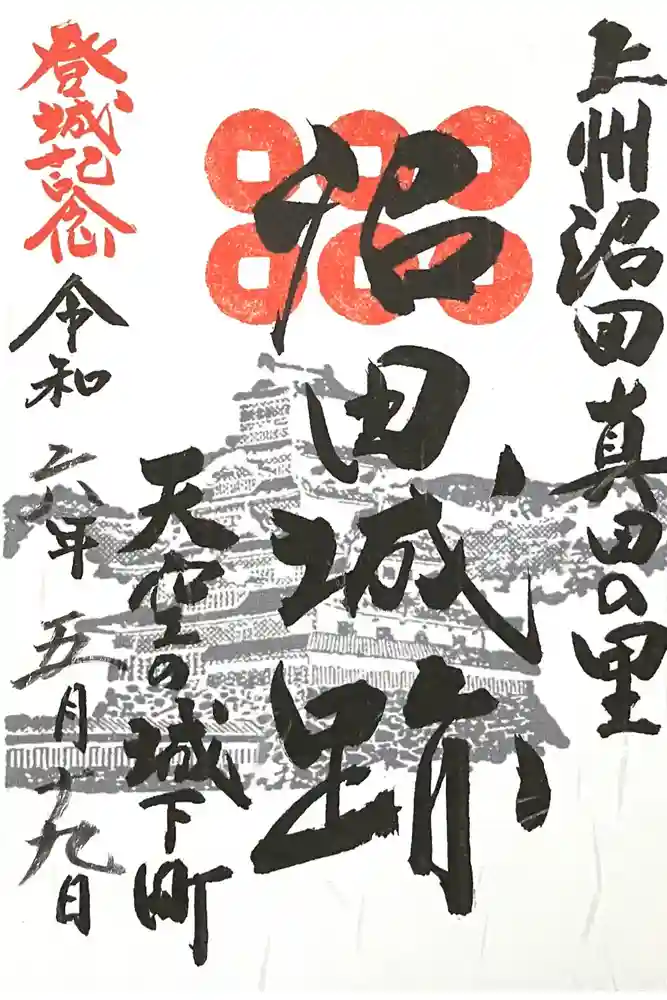 上州沼田真田の里
沼田城跡
天空の城下町
登城記念
令和六年五月十九日